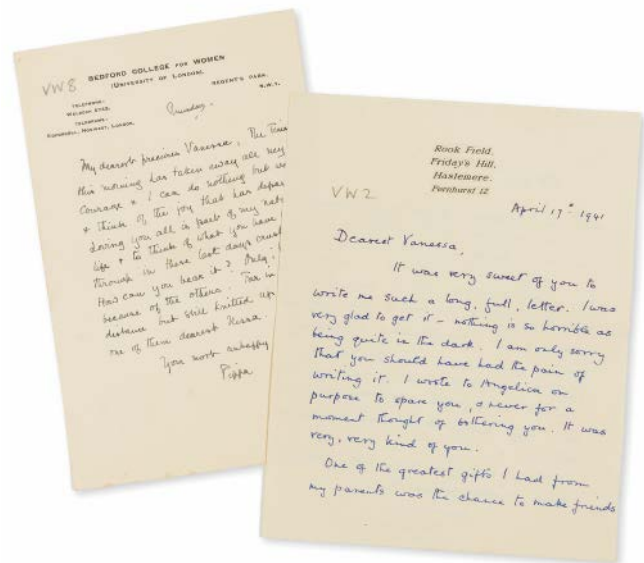 VW8
BEDFORD COLLEGE FOR WOMEN
(UNIVERSITY OF LONDON).
REGENT'S PARK,
N.W.1.
TELEPHONE:
TELEGRAMS:
LONDON.
My dearest precious Vanessa, The Times
this morning has taken away all my
courage & I can do nothing but
& think of the joy that has
Loving you all is part of my
life & to think of what you have
through in these last days
How can you bear it? Only
because of the others. Far in
distance but still knitted up
one of them dearest Nessa.
Your most unhappy
Pippa
VW2
Rook Field,
Friday's Hill,
Haslemere.
Fernhurst 12.
April 17th 1941
Dearest Vanessa,
It was very sweet of you to
write me such a long, full, letter. I was
very glad to get it – nothing is so horrible as
being quite in the dark. I am only sorry
that you should have had the pain of
writing it. I wrote to Angelica on
purpose to spare you, & never for a
moment thought of bothering you. It was
very, very kind of you.
One of the greatest gifts I had from
my parents was the chance to make friends